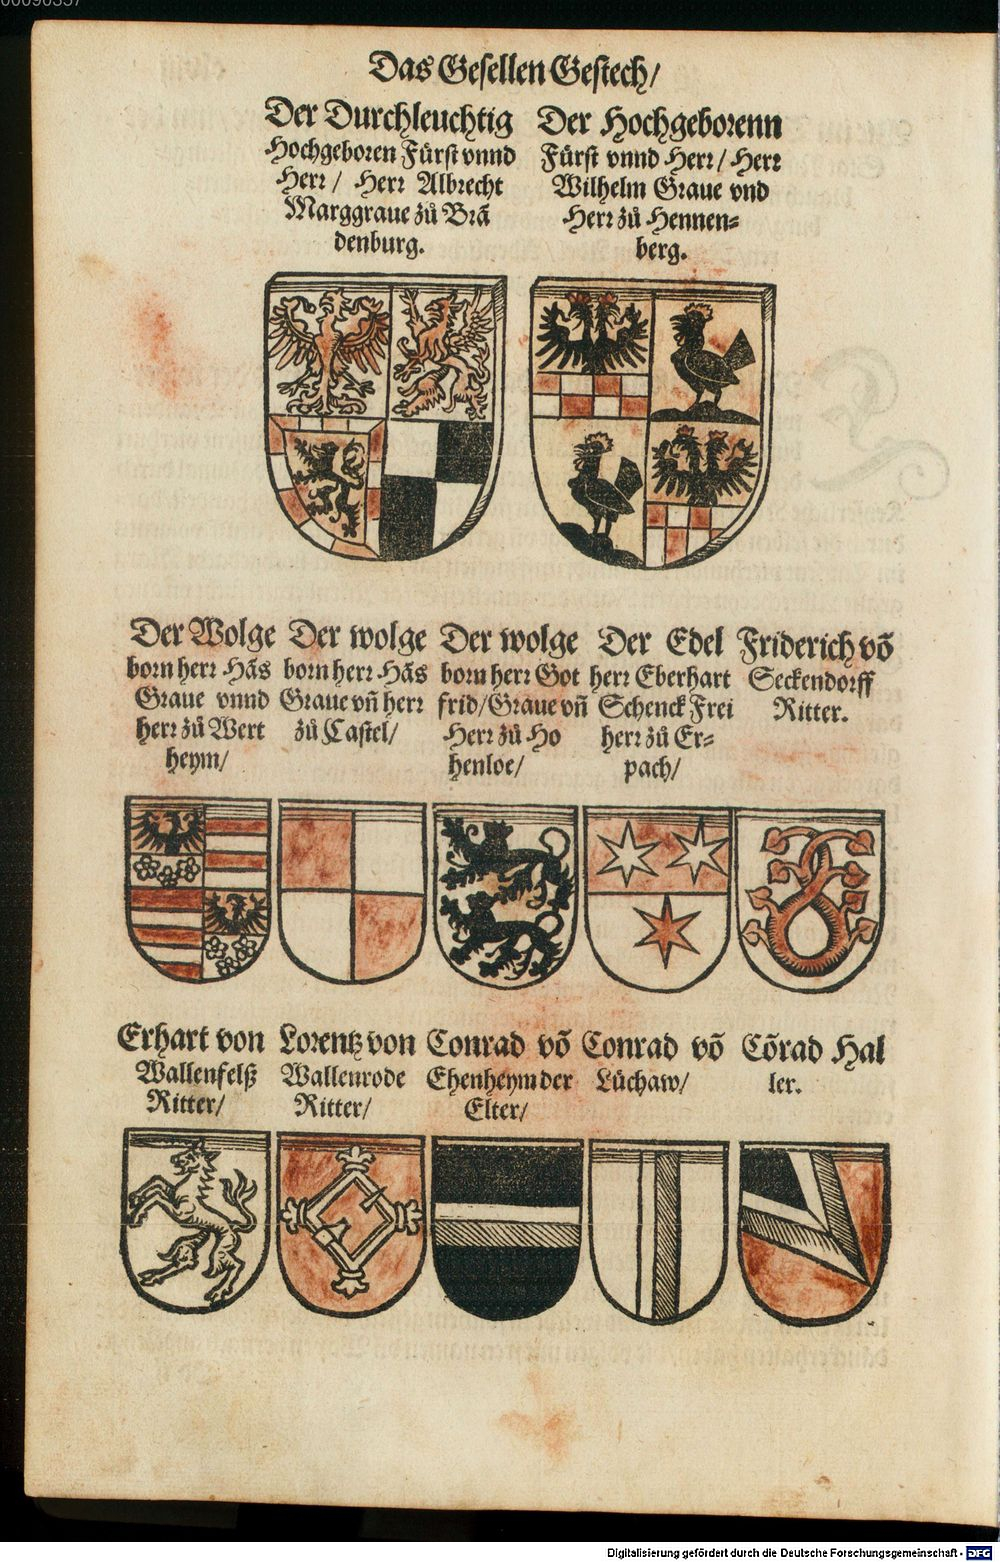 Das Gesellen Gestech/
Der Durchleuchtig
Hochgeboren Fürst vnnd
Herr/ Herr Albrecht
Marggraue zů Brā
denburg.
Der Hochgeborenn
Fürst vnnd Herr/ Herr
Wilhelm Graue vnd
Herr zů Hennen=
berg.
Der Wolge
born herr Hās
Graue vnnd
herr zů Wert
heym/
Der wolge
born herr Hās
Graue vñ herr
zů Castel/
Der wolge
born herr Got
frid/Graue vñ
Herr zů Ho
henloe/
Der Edel
herr Eberhart
Schenck Frei
herr zů Er=
pach/
Friderich vō
Seckendorff
Ritter.
Erhart von
Wallenfelß
Ritter/
Lorentz von
Wallenrode
Ritter/
Conrad vō
Ehenheym der
Elter/
Conrad vō
Lüchaw/
Cōrad Hal
ler.
Digitalisierung gefördert durch die Deutsche Forschungsgemeinschaft - DFG